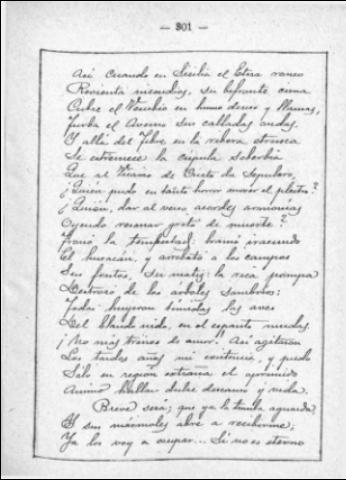 — 301 —
Así cuando en Sicilia el Etna ronco
Revienta incendios, su bifronte cima
Cubre el Vesubio en humo denso y llamas,
Turba el Averno sus calladas ondas.
Y allá del Tibre en la ribera etrusca
Se estremece la cúpula soberbia
Que al Vicario de Cristo da sepulcro.
¿Quién pudo en tanto horror mover el plectro?
¿Quién, dar al verso acordes armonías
Oyendo resonar grito de muerte?
Tronó la tempestad: bramó iracundo
El huracán, y arrebató a los campos
Sus frutos, su matiz: la rica pompa
Destrozó de los árboles sombríos:
Todas huyeron tímidas las aves
Del blando nido, en el espanto mudas.
¡No más trinos de amor! Así agitaron
Los tardos años mi existencia, y pudo
Sólo en región extraña el oprimido
Ánimo hallar dulce descanso y vida.
Breve será; que ya la tumba aguarda
Y sus mármoles abre a recibirme;
Ya los voy a ocupar... Si no es eterno